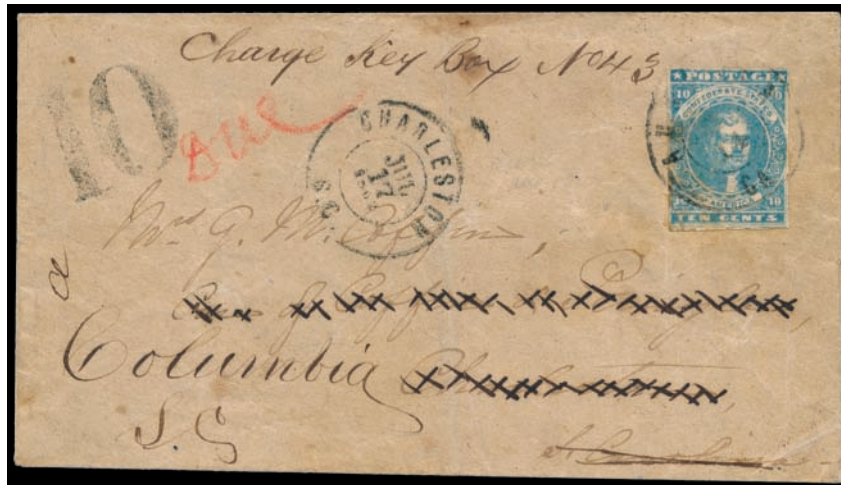 Charge Key Box No 43
10
Due
CHARLESTON
S.C.
JUL
17
POSTAGE
10 CONFEDERATE STATES 10
AMERICA
10 10
TEN CENTS
GA
Mrs G. M. Coffin,
Columbia
S. C
S. Carolina